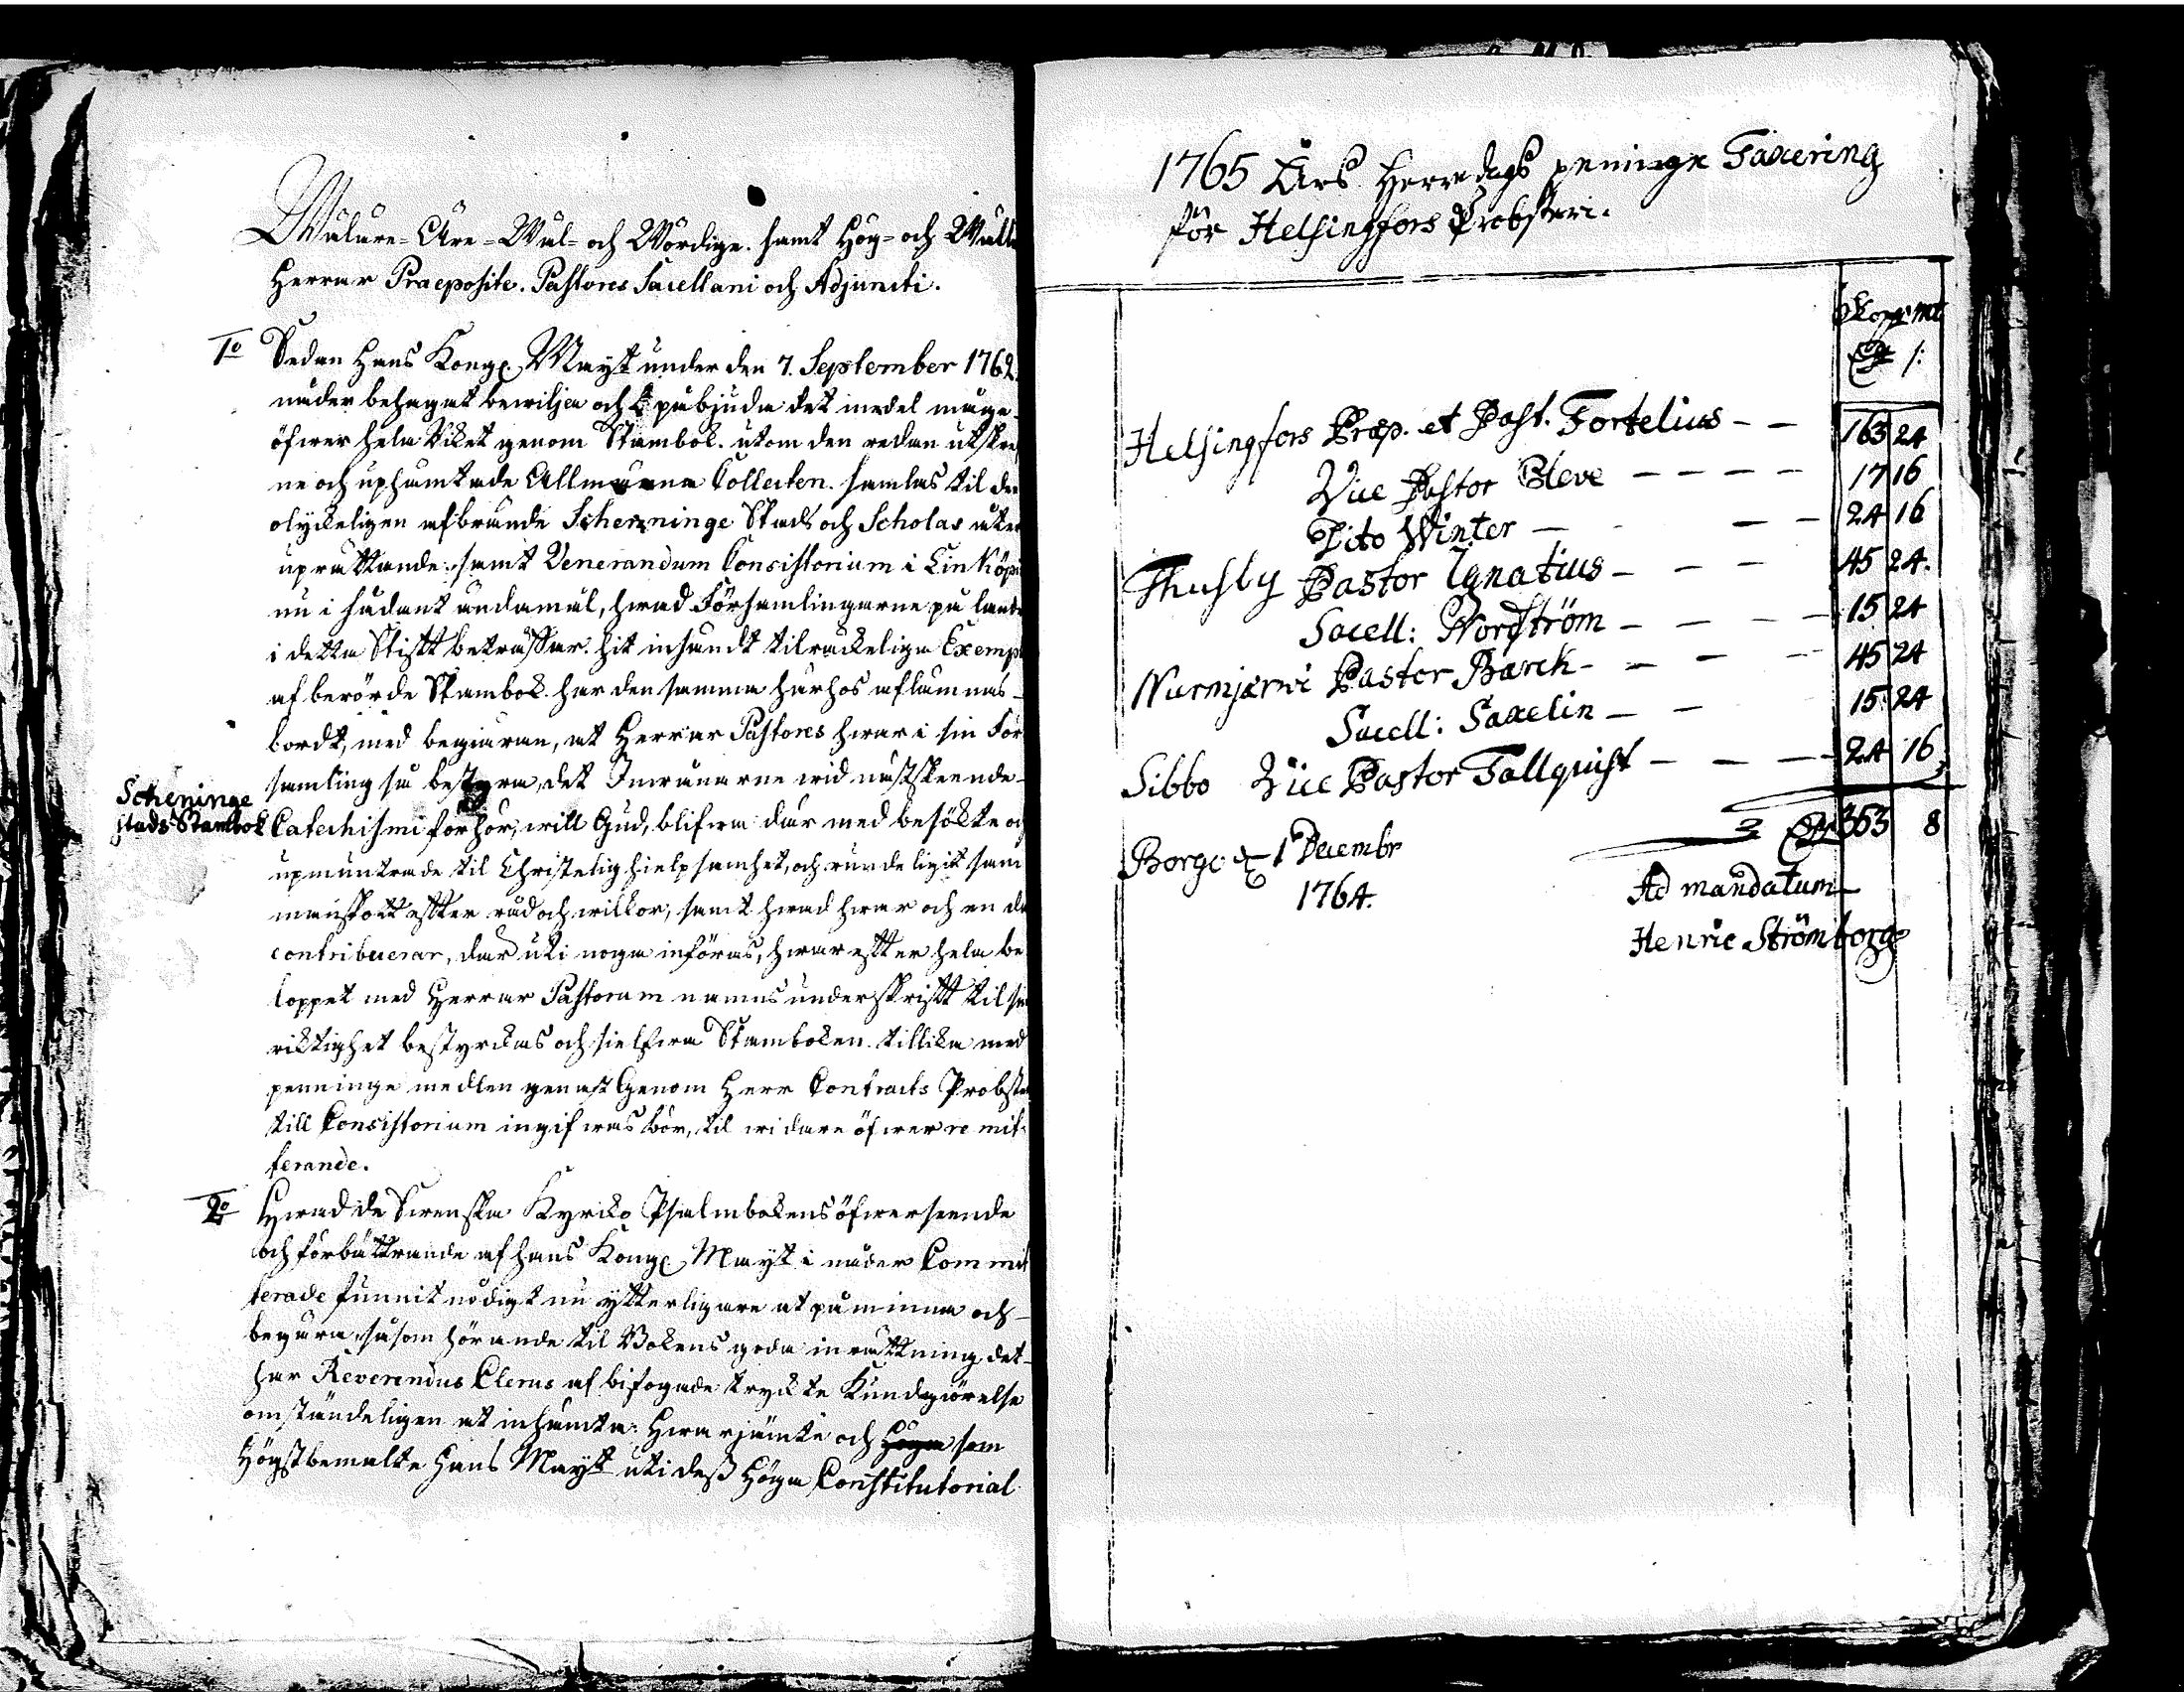 Wälure- Äre- Wäl- och Wördige. samt Hög- och Wäll
Herrar Praeposite. Pastores Sacellani och Adjuncti.
1o Sedan Hans Kongl. Mayt under den 7. September 1762.
nåder behagat bewilja och påbjuda det medel måge
öfwer hela Riket genom Stambok. utom den redan utskre
ne och uphämtade Allmänna Collecten. samlas til den
olyckeligen afbrände Scheninge Stads och Scholas åter
uprättande. samt Venerandum Consistorium i Linköp
nu i sådant ändamål, hwad Församlingarne på land
i detta Stift beträffar. hit insändt tilräckelige Exemp
af berörde Stambok. har den samma härhos aflämnas
bordt, med begiäran, at Herrar Pastores hwar i sin För
samling så bestyra, det Inwånarne wid nästskeende
Scheninge
stads Stambok
Catechismi förhör, will Gud, blifwa der med besökte oc
upmuntrade til Christelig hielpsamhet, och rundeligit sam
manskott efter råd och willkor, samt hwad hwar och en de
contribuerar, där uti noga införas, hwarefter hela be
loppet med Herrar Pastorum namns underskrift til sin
riktighet bestyrckas och sielfwa Stamboken. tillika med
penninge medlen genast Genom Herr Contracts Probsten
till Consistorium ingifwas bör, til widare öfwer remit-
terande.
2o Hwad de Swenska Kyrko Psalmbokens öfwerseende
och förbättrande af hans Kongl. Mayt i nåder Commit
terade funnit nödigt nu ytterligare at påminna och
begära, såsom hörande til Bokens goda inrättning det
har Reverendus Clerus af bifogade tryckte Kundgiörelse
omständeligen at inhämta: Hwarjämte och Höga som
Högstbemälte Hans Mayt uti dess Höga Constitutorial
1765 Års Herredags peninge Taxering
för Helsingfors Probsteri.
Kopp:mt
Dr /:
Helsingfors Præp. et Past. Fortelius - - 163 24
Vice Pastor Kleve - - - - 17 16
Dito Winter - - - 24 16
Thusby Pastor Ignatius - - - 45 24.
Sacell: Nordström - - - - 15 24
Nurmjerwi Pastor Barck - - - - 45 24
Sacell: Saxelin - - 15 24
Sibbo Vice Pastor Tallquist - - - - 24 16
353 8
Borgo d. 1 Decembr
1764.
Ad mandatum
Henric Strömborg